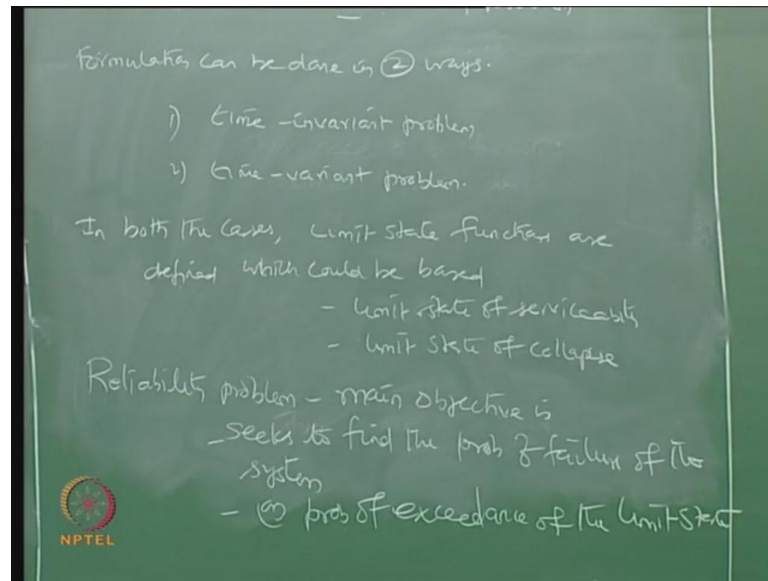 Formulation can be done in ② ways.
1) time-invariant problem
2) time-variant problem.
In both the cases, limit state functions are
defined which could be based
- limit state of serviceability
- limit state of collapse
Reliability problem - main objective is
- seeks to find the prob of failure of the
system
- prob of exceedance of the limit state
NPTEL